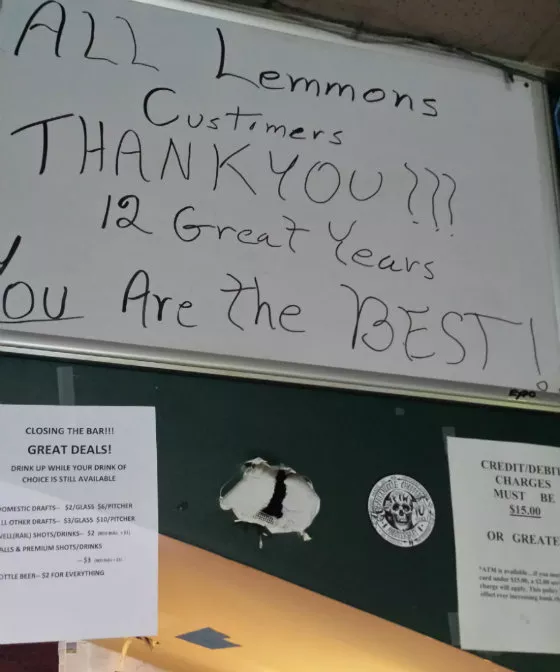 ALL Lemmons
Customers
THANKYOU???
12 Great Years
YOU Are the BEST!
EXPO
CLOSING THE BAR!!!
GREAT DEALS!
DRINK UP WHILE YOUR DRINK OF
CHOICE IS STILL AVAILABLE
DOMESTIC DRAFTS-- $2/GLASS $6/PITCHER
ALL OTHER DRAFTS-- $3/GLASS $10/PITCHER
WELL(RAIL) SHOTS/DRINKS-- $2
CALLS & PREMIUM SHOTS/DRINKS
-- $3
BOTTLE BEER-- $2 FOR EVERYTHING
CREDIT/DEBIT
CHARGES
MUST BE
$15.00
OR GREATER